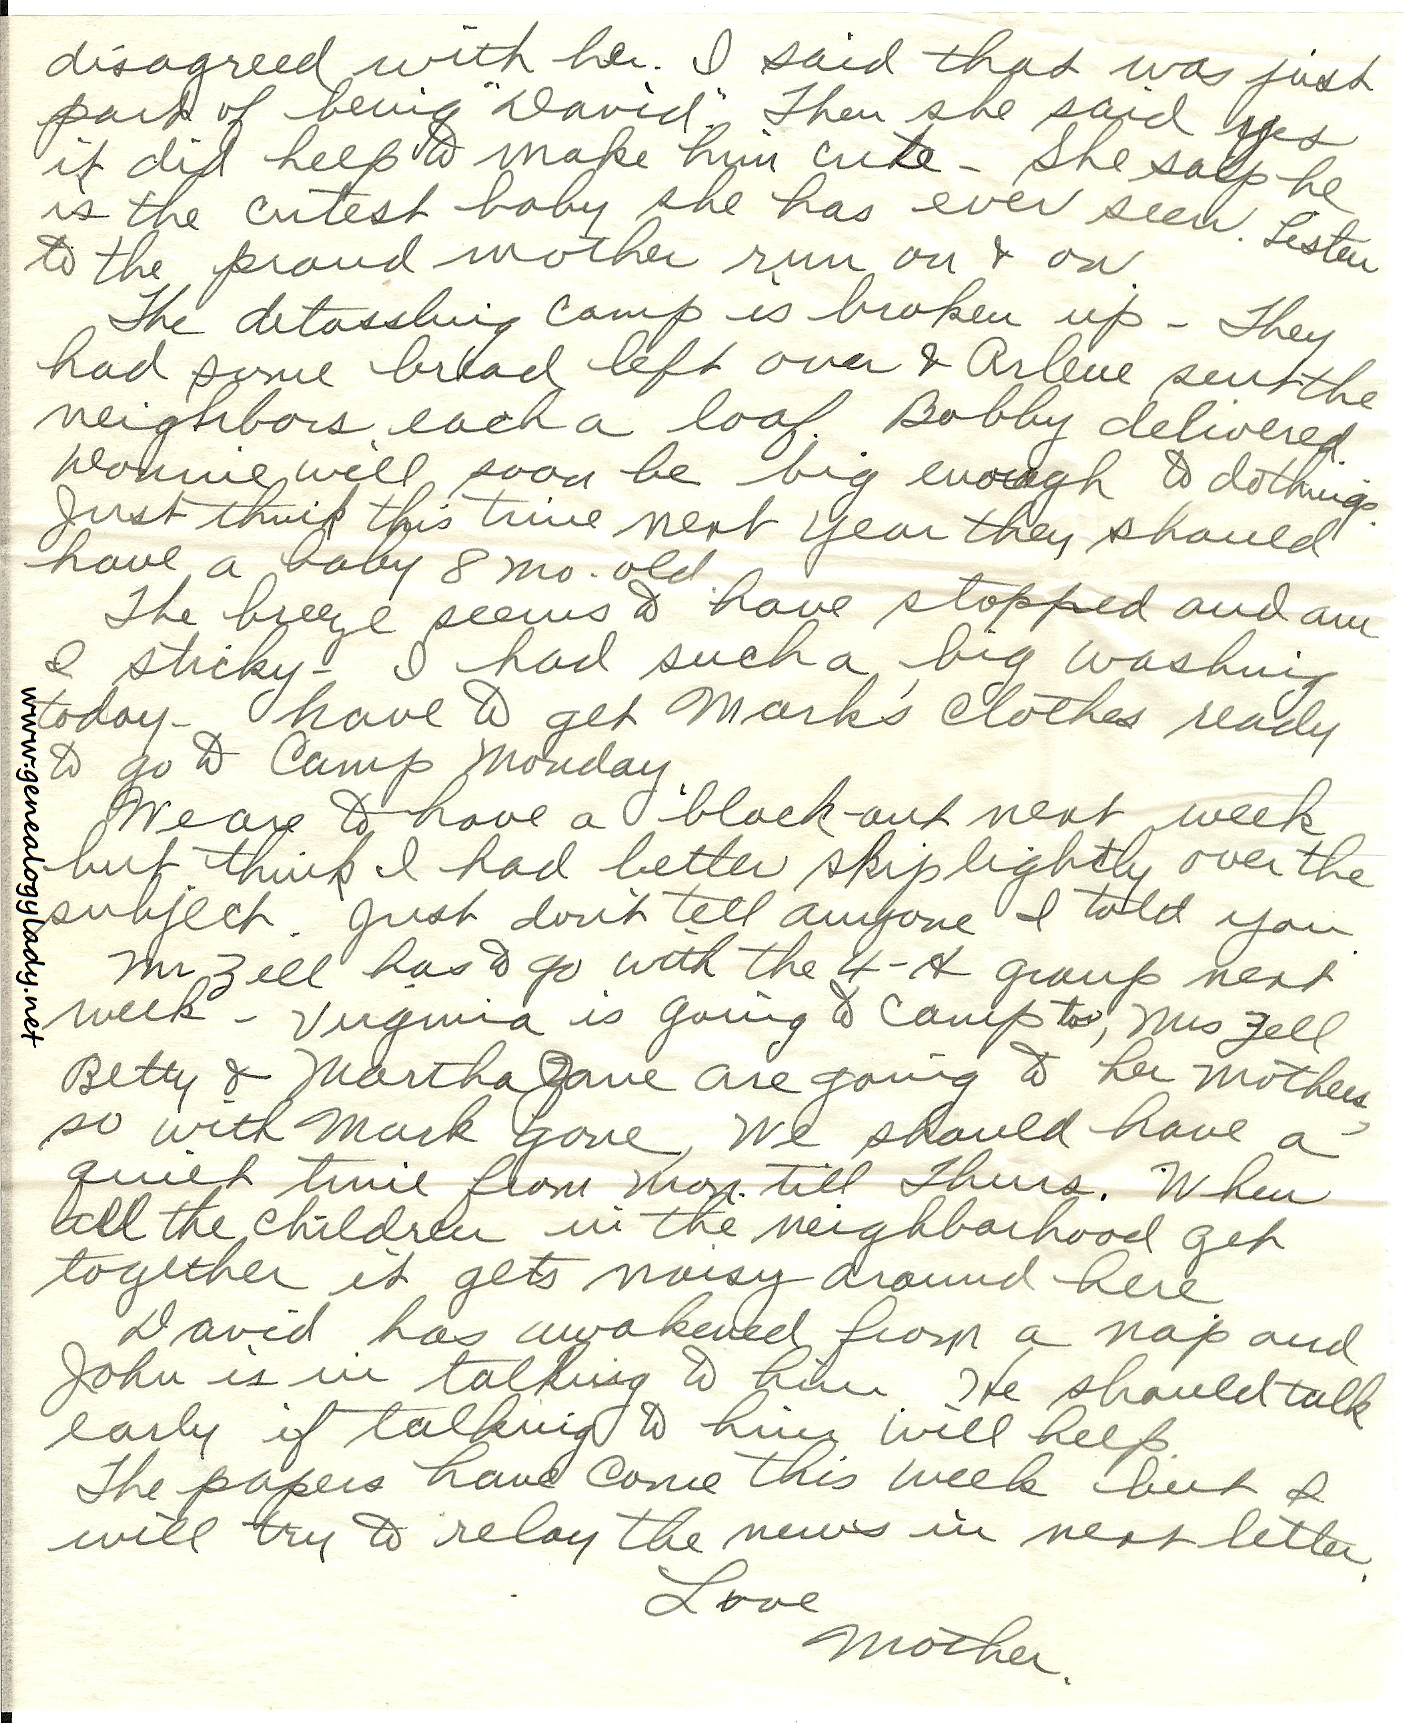 disagreed with her. I said that was just
part of being "David". Then she said yes
it did help to make him cute - She says he
is the cutest baby she has ever seen. Listen
to the proud mother run on & on.
The detassling camp is broken up - They
had some bread left over & Arlene sent the
neighbors each a loaf. Bobby delivered.
Donnie will soon be big enough to do things.
Just think this time next year they should
have a baby 8 mo. old.
The breeze seems to have stopped and am
I sticky - I had such a big washing
today - have to get Mark's clothes ready
to go to Camp Monday.
We are to have a black-out next week
but think I had better skip lightly over the
subject. Just don't tell anyone I told you.
Mr Zell has to go with the 4-H group next
week - Virginia is going to camp too, Mrs Zell
Betty & Martha Jane are going to her mothers,
so with Mark gone, We should have a
quiet time from Mon. till Thurs. When
all the children in the neighborhood get
together it gets noisy around here
David has awakened from a nap and
John is in talking to him. He should talk
early if talking to him will help.
The papers have come this week but I
will try to relay the news in next letter.
Love
Mother.
www.genealogylady.net